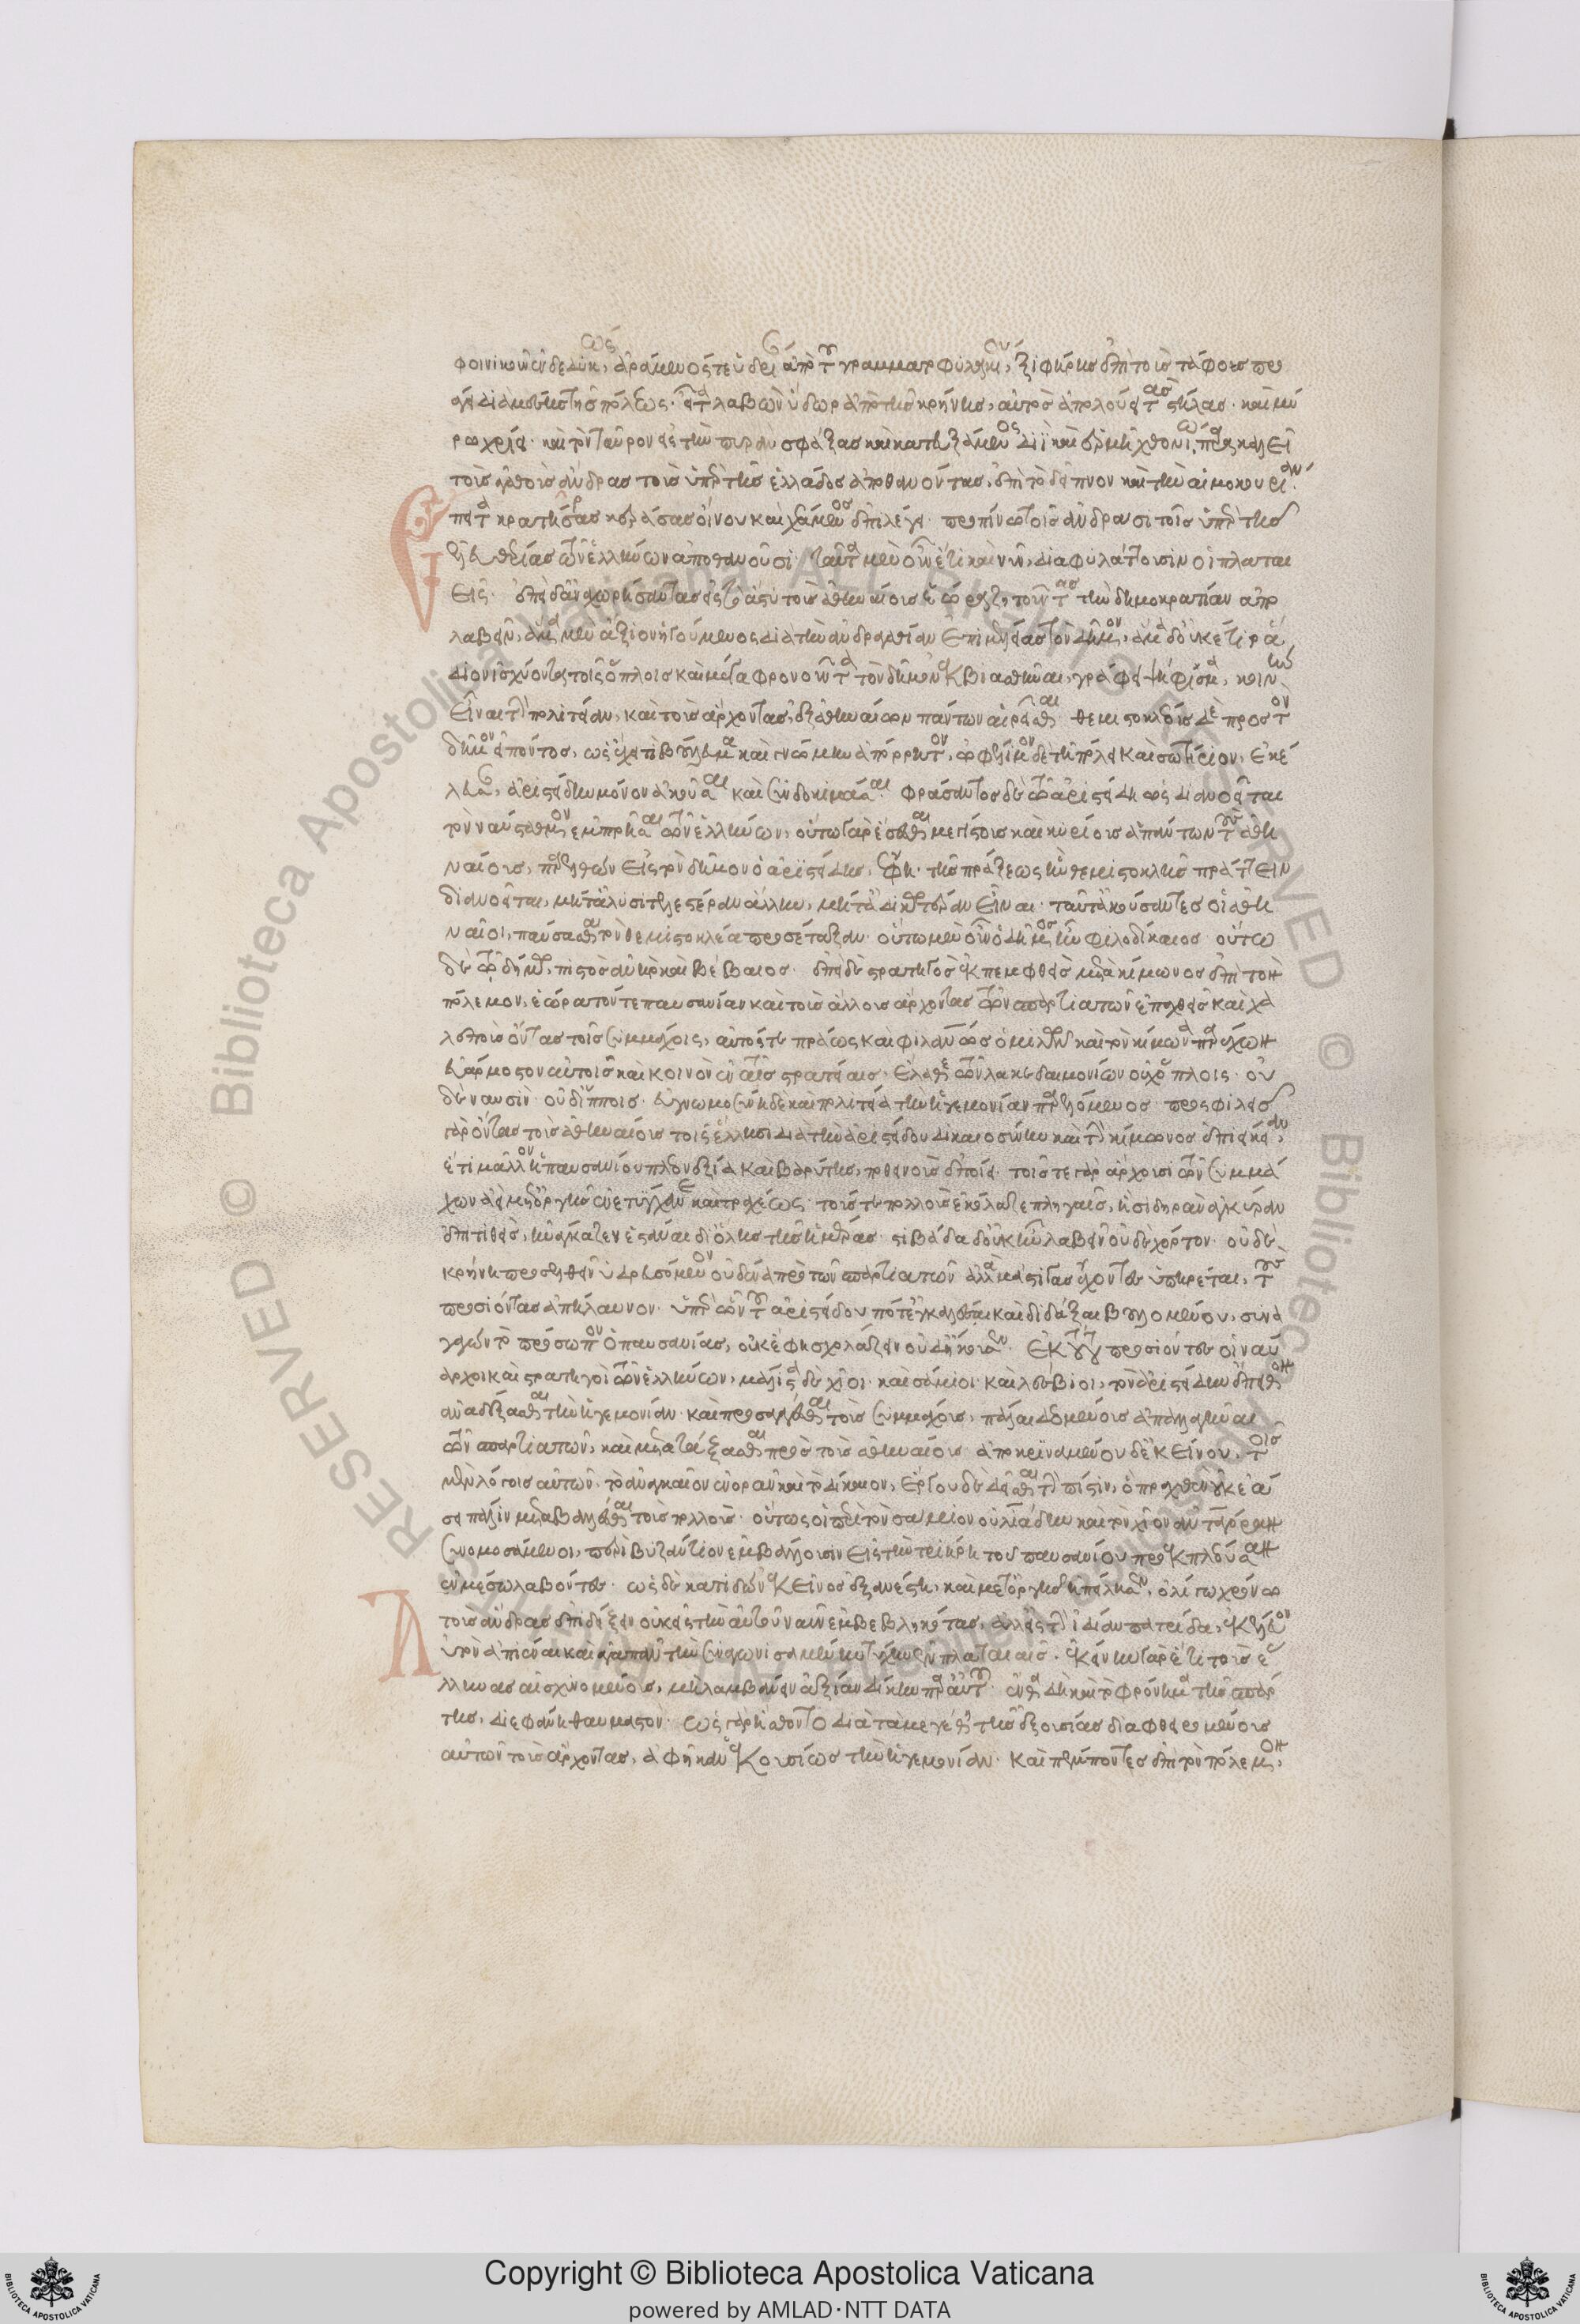 φοινικοῦν ἐνδεδυκὼς, ἀράμενός τε ὑδρίαν ἀπὸ τοῦ γραμματοφυλακίου, ξιφήρης ἐπὶ τοὺς τάφους προ
άγει διὰ μέσης τῆς πόλεως. εἶτα λαβὼν ὕδωρ ἀπὸ τῆς κρήνης, αὐτὸς ἀπολούει τὰς στήλας. καὶ μύ
ρῳ χρίει. καὶ τὸν ταῦρον εἰς τὴν πυρὰν σφάξας καὶ κατευξάμενος διῒ καὶ ἑρμῇ χθονίῳ, παρακαλεῖ
τοὺς ἀγαθοὺς ἄνδρας τοὺς ὑπὲρ τῆς ἑλλάδος ἀποθανόντας, ἐπὶ τὸ δεῖπνον καὶ τὴν αἱμοκουρίαν.
ἔπειτα κρατῆρα κεράσας οἴνου καὶ χεάμενος ἐπιλέγει. προπίνω τοῖς ἀνδράσι τοῖς ὑπὲρ τῆς
ἐλευθερίας τῶν ἑλλήνων ἀποθανοῦσι. ταῦτα μὲν οὖν ἔτι καὶ νῦν, διαφυλάττουσιν οἱ πλαται
εῖς. ἐπεὶ δ' ἀναχωρήσαντας εἰς τὸ ἄστυ τοὺς ἀθηναίους ἑώρα ζητοῦντας τὴν δημοκρατίαν ἀπο
λαβεῖν, ἅμα μὲν ἄξιον ἡγούμενος διὰ τὴν ἀνδραγαθίαν ἐπιμελείας τὸν δῆμον, ἅμα δ' οὐκέτι ῥᾴ
διον ἰσχύοντα τοῖς ὅπλοις καὶ μέγα φρονοῦντα τὸν δῆμον ἐκβιασθῆναι, γράφει ψήφισμα, κοινὴν
εἶναι τὴν πολιτείαν, καὶ τοὺς ἄρχοντας, ἐξ ἀθηναίων πάντων αἱρεῖσθαι. θεμιστοκλέους δὲ πρὸς τὸν
δῆμον εἰπόντος, ὡς ἔχει τι βούλευμα καὶ γνώμην ἀπόρρητον, ὠφέλιμον δὲ τῇ πόλει καὶ σωτήριον, ἐκέ
λευσαν, ἀριστείδην μόνον ἀκοῦσαι καὶ συνδοκιμάσαι. φράσαντος δὲ τῷ ἀριστείδῃ ὡς διανοεῖται
τὸν ναύσταθμον ἐμπρῆσαι τῶν ἑλλήνων, οὕτω γὰρ ἔσεσθαι μεγίστους καὶ κυρίους ἁπάντων τοὺς ἀθη
ναίους, παρελθὼν εἰς τὸν δῆμον ὁ ἀριστείδης, ἔφη. τῆς πράξεως ἣν θεμιστοκλῆς πράττειν
διανοεῖται, μήτε λυσιτελεστέραν ἄλλην, μήτε ἀδικωτέραν εἶναι. ταῦτ' ἀκούσαντες οἱ ἀθη
ναῖοι, παύσασθαι τὸν θεμιστοκλέα προσέταξαν. οὕτω μὲν οὖν ὁ δῆμος ἦν φιλοδίκαιος. οὕτω
δὲ τῷ δήμῳ, πιστὸς ἀνὴρ καὶ βέβαιος. ἐπεὶ δὲ στρατηγὸς ἐκπεμφθεὶς μετὰ κίμωνος ἐπὶ τὸν
πόλεμον, ἑώρα τόν τε παυσανίαν καὶ τοὺς ἄλλους ἄρχοντας τῶν σπαρτιατῶν ἐπαχθεῖς καὶ χα
λεποὺς ὄντας τοῖς συμμάχοις, αὐτός τε πράως καὶ φιλανθρώπως ὁμιλῶν καὶ τὸν κίμωνα παρέχων
εὐάρμοστον αὐτοῖς καὶ κοινὸν ἐν ταῖς στρατείαις. ἔλαθε τῶν λακεδαιμονίων οὐχ ὅπλοις. οὐ
δὲ ναυσὶν. οὐδ' ἵπποις. εὐγνωμοσύνῃ δὲ καὶ πολιτείᾳ τὴν ἡγεμονίαν παρελόμενος. προσφιλεῖς
γὰρ ὄντας τοὺς ἀθηναίους τοῖς ἕλλησι διὰ τὴν ἀριστείδου δικαιοσύνην καὶ τὴν κίμωνος ἐπιείκειαν,
ἔτι μᾶλλον ἡ παυσανίου πλεονεξία καὶ βαρύτης, ποθεινοὺς ἐποίει. τοῖς τε γὰρ ἄρχουσι τῶν συμμά
χων ἀεὶ μετ' ὀργῆς ἐνετύγχανε καὶ τραχέως. τούς τε πολλοὺς ἐκόλαζε πληγαῖς, ἢ σιδηρᾶν ἄγκυραν
ἐπιτιθεὶς, ἠνάγκαζεν ἑστάναι δι' ὅλης τῆς ἡμέρας. στιβάδα δ' οὐκ ἦν λαβεῖν οὐδὲ χόρτον. οὐδὲ
κρήνῃ προσελθεῖν ὑδρευσόμενον οὐδένα πρὸ τῶν σπαρτιατῶν ἀλλὰ μάστιγας ἔχοντες ὑπηρέται, τοὺς
προσιόντας ἀπήλαυνον. ὑπὲρ ὧν τοῦ ἀριστείδου ποτὲ ἐγκαλέσαι καὶ διδάξαι βουλομένου, συνα
γαγὼν τὸ πρόσωπον ὁ παυσανίας, οὐκ ἔφη σχολάζειν οὐδ' ἤκουσεν. ἐκ τούτου προσιόντες οἱ ναύ
αρχοι καὶ στρατηγοὶ τῶν ἑλλήνων, μάλιστα δὲ χῖοι. καὶ σάμιοι. καὶ λέσβιοι, τὸν ἀριστείδην ἔπειθον
ἀναδέξασθαι τὴν ἡγεμονίαν. καὶ προσαγαγέσθαι τοὺς συμμάχους, πάλαι δεομένους ἀπαλλαγῆναι
τῶν σπαρτιατῶν, καὶ μετατάξασθαι πρὸς τοὺς ἀθηναίους. ἀποκριναμένου δ' ἐκείνου, τοῖς
μὲν λόγοις αὐτῶν. τὸ ἀναγκαῖον ἐνορᾶν καὶ τὸ δίκαιον, ἔργου δὲ δεῖσθαι τὴν πίστιν, ὃ πραχθὲν οὐκ ἐά
σει πάλιν μεταβαλέσθαι τοὺς πολλοὺς. οὕτως οἱ περὶ τὸν σάμιον οὐλιάδην καὶ τὸν χῖον ἀνταγόραν
συνομοσάμενοι, περὶ βυζάντιον ἐμβάλλουσιν εἰς τὴν τριήρη τοῦ παυσανίου προεκπλέουσαν
ἐν μέσῳ λαβόντες. ὡς δὲ κατιδὼν ἐκεῖνος ἐξανέστη, καὶ μετ' ὀργῆς ἠπείλησεν, ὀλίγῳ χρόνῳ
τοὺς ἄνδρας ἐπιδείξειν οὐκ εἰς τὴν αὐτοῦ ναῦν ἐμβεβληκότας, ἀλλ' εἰς τὴν ἰδίαν πατρίδα, ἐκέλευον
αὐτὸν ἀπιέναι καὶ ἀγαπᾶν τὴν συναγωνισαμένην τύχην ἐν πλαταιαῖς. ἐκείνην γὰρ ἔτι τοὺς ἕ
λληνας αἰσχυνομένους, μὴ λαμβάνειν ἀξίαν δίκην παρ' αὐτοῦ. ἔνθα δὴ καὶ τὸ φρόνημα τῆς σπάρ
της, διεφάνη θαυμαστόν. ὡς γὰρ ᾔσθοντο διὰ τὰ μεγέθη τῆς ἐξουσίας διαφθειρομένους
αὐτῶν τοὺς ἄρχοντας, ἀφῆκαν ἑκουσίως τὴν ἡγεμονίαν. καὶ πέμποντες ἐπὶ τὸν πόλεμον,
Copyright © Biblioteca Apostolica Vaticana
powered by AMLAD·NTT DATA